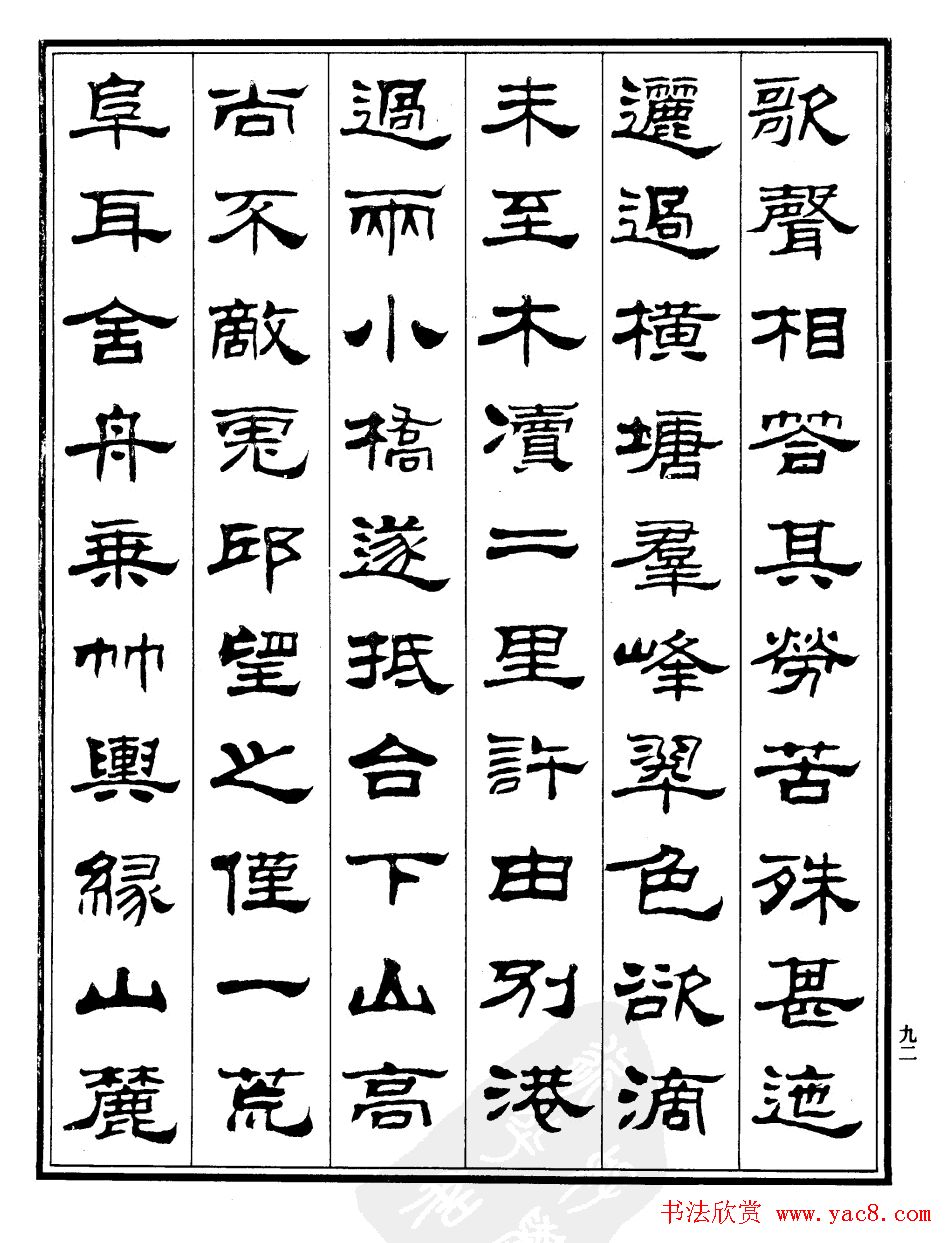 歌聲相荅其勞苦殊甚迤
邐過橫塘羣峰翠色欲滴
未至木瀆二里許由別港
過兩小橋遂抵台下山高
尚不敵虎邱望之僅一荒
阜耳舍舟乗竹輿緣山麓
九二
书法欣赏 www.yac8.com